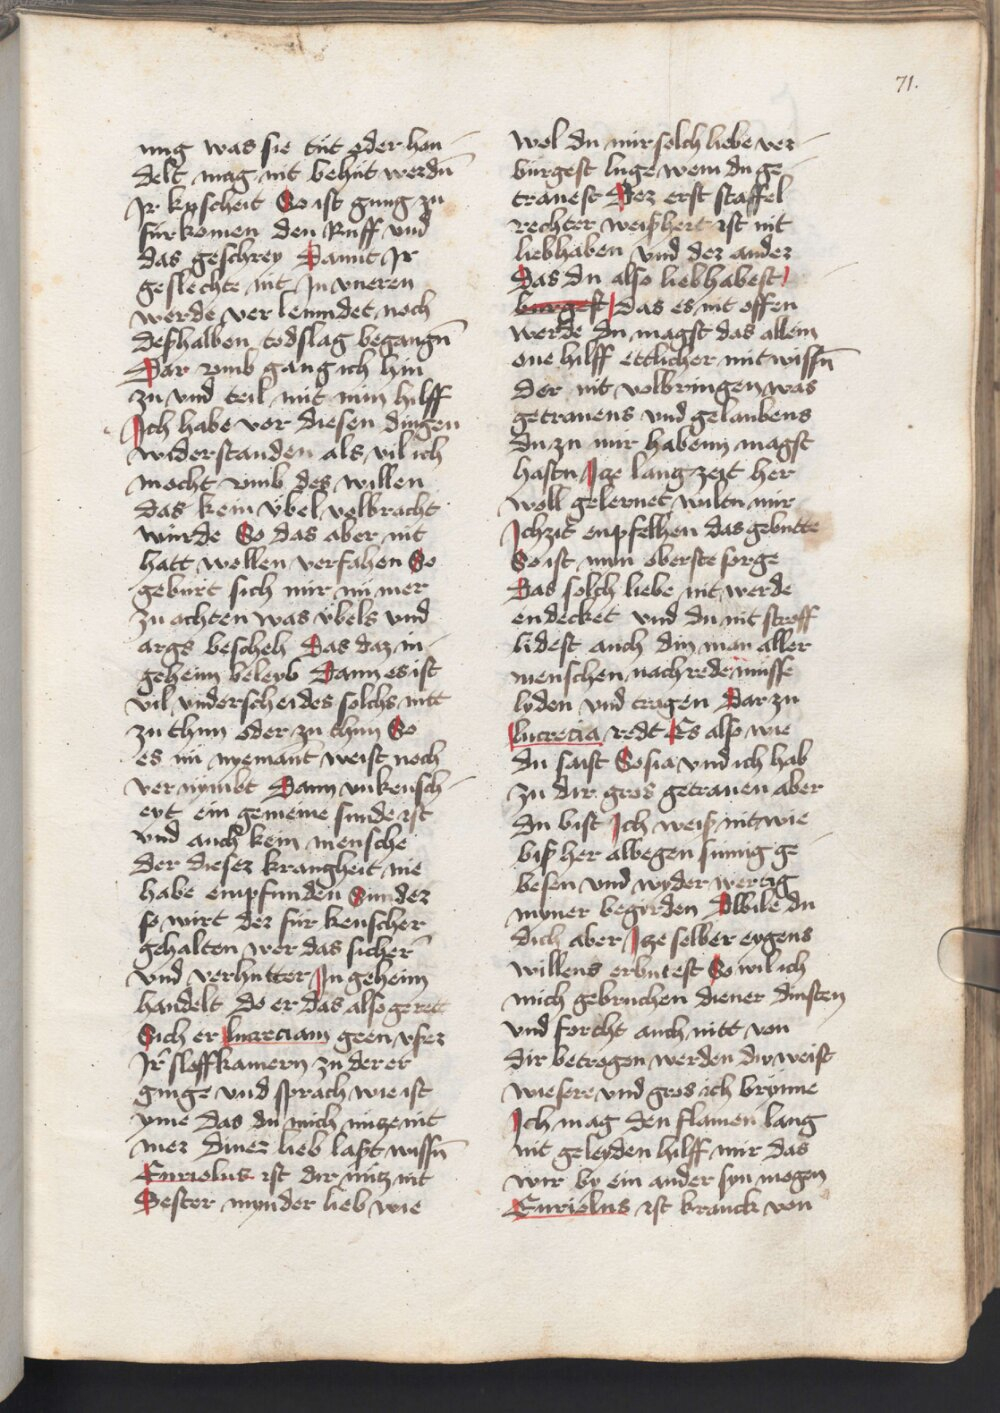 71.
nng was sie tut oder han-
delt mag nit behut werdn̄
Ir kyscheit So ist gnug zu
fürkomen den Ruff vnd
das geschrey Damit Ir
geslechte nit In vneren
werde verleumdet noch
deßhalben todslag begangn̄
Dar vmb gang ich hin
zu vnd teil mit mim hilff
Ich habe vor diesen dingen
widerstanden als vil ich
mocht vmb des willen
das kein vbel volbracht
wurde So das aber nit
hatt wollen verfahen So
geburt sich mir nimer
zu achten was vbels vnd
args bescheh Das daz in
geheim beleyb Dann es ist
vil vnderscheides solchs nitt
zu thun oder zu thun So
es ni nyemant weist noch
vernymbt Dann vnkensch-
eyt ein gemeine sunde ist
vnd auch kein mensche
der dieser krangheit nie
habe empfunden Sunder
so wirt der fur kenscher
gehalten wer das sicher
vnd verhutter In geheim
handelt do er das also gerett
Sich er lucreciam geen vßer
Ir slaffkamern zu der er
ginge vnd sprach wie ist
yme das du mich nitze nit
mer diner lieb laßt wissn̄
Euriolus ist dir nitz nit
Dester mynder lieb wie
wol du mir solch liebe ver-
burgest luge wem du ge-
trauest Der erst staffel
rechter weißheit ist nit
liebhaben vnd der ander
Das du also liebhabest
burgest das es nit offen
werde du magst das allein
one hilff ettlicher mit wissn̄
der nit volbringen was
getrauens vnd gelaubens
du zu mir habenn magst
hastu Ize lang zeit her
woll gelernet wiltu mir
Ichzit enpfelhen das gebutte
So ist mim oberste sorge
Das solch liebe nit werde
endecket vnd du nit straff
lidest auch din man aller
menschen nachrede musse
lyden vnd tragen Dar zu
lucrecia redt Es also wie
du saist Sosia vnd ich hab
zu dir gros getrauen aber
du bist Ich weiß nit wie
biß her albegen sumig ge-
besen vnd wyder wertig
myner begyrden Alwile du
dich aber Ize selber eygens
willens erbutest So wil ich
mich gebruchen diener dinsten
vnd forcht auch nitt von
dir betrogen werden du weist
wie sere vnd gros ich brynne
Ich mag den flamen lang
nit geleyden hilff mir das
wir by ein ander syn mogen
Euriolus ist kranck von